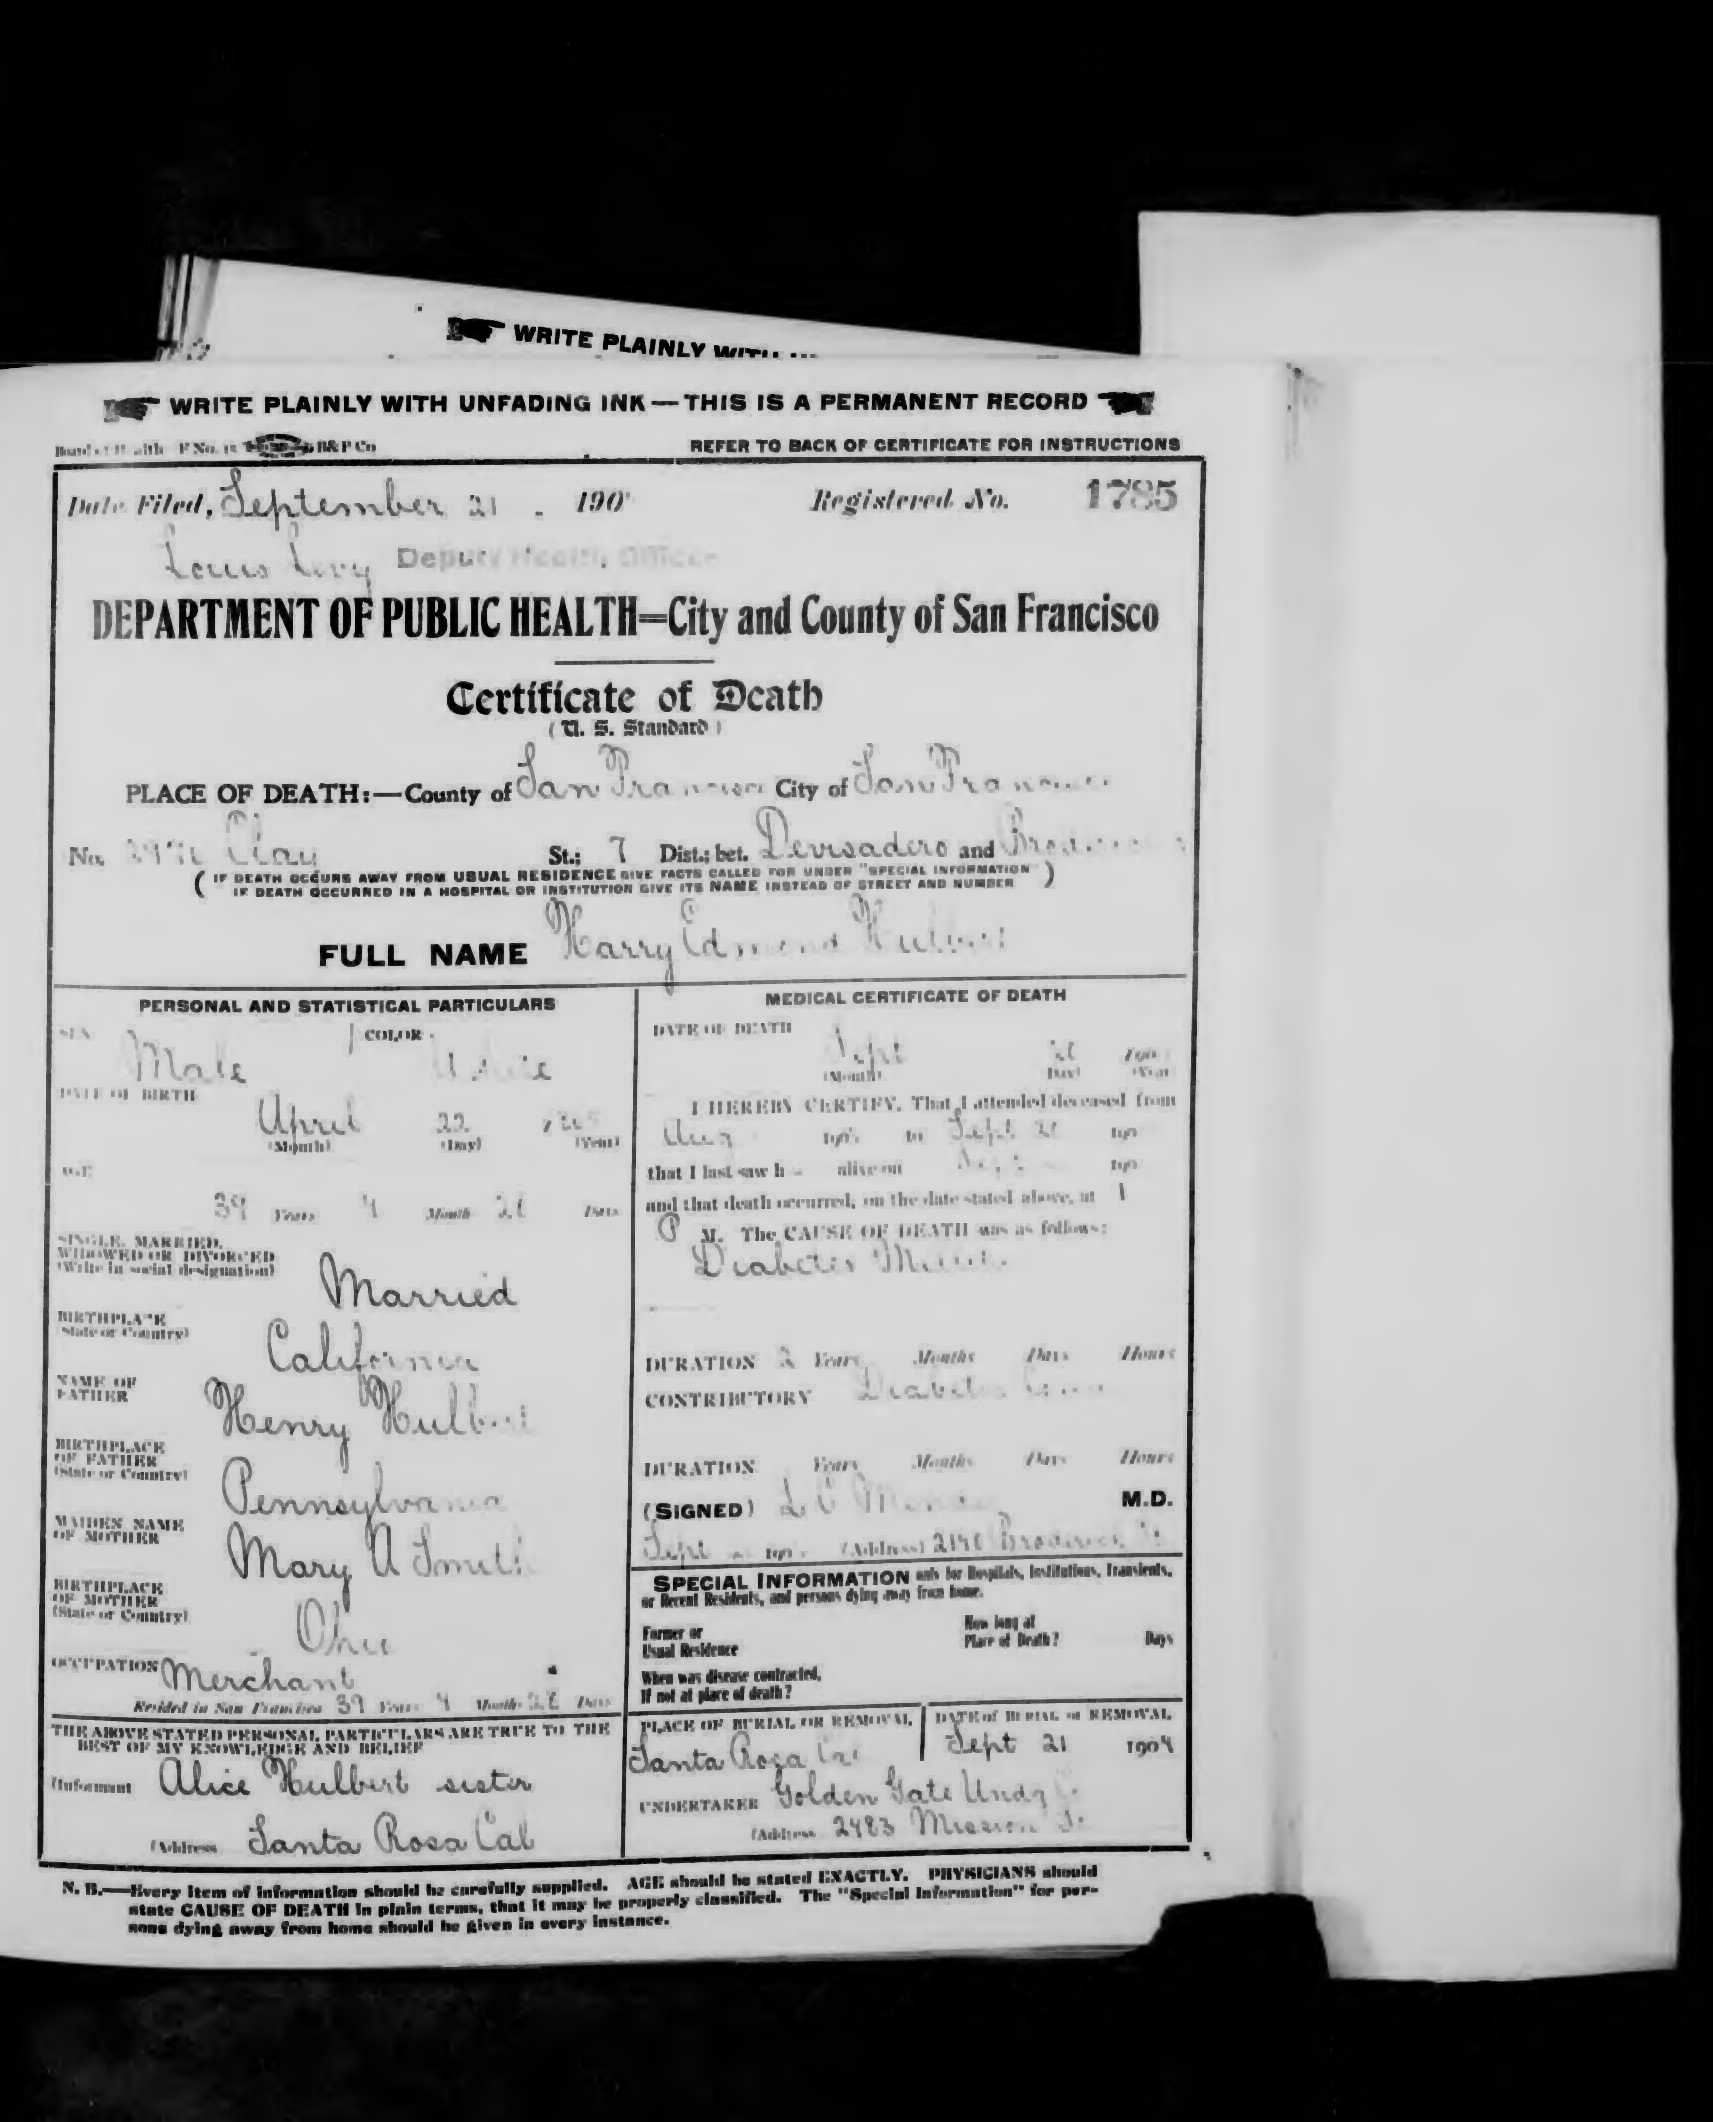 WRITE PLAINLY
WRITE PLAINLY WITH UNFADING INK—THIS IS A PERMANENT RECORD
B&P Co REFER TO BACK OF CERTIFICATE FOR INSTRUCTIONS
Date Filed, September 21 190 Registered No. 1785
Louis Levy Deputy Health Officer
DEPARTMENT OF PUBLIC HEALTH=City and County of San Francisco
Certificate of Death
(U. S. Standard)
PLACE OF DEATH:—County of San Francisco City of San Francisco
No. Clay St.; 7 Dist.; bet. Devisadero and
(IF DEATH OCCURS AWAY FROM USUAL RESIDENCE GIVE FACTS CALLED FOR UNDER "SPECIAL INFORMATION"
IF DEATH OCCURRED IN A HOSPITAL OR INSTITUTION GIVE ITS NAME INSTEAD OF STREET AND NUMBER)
FULL NAME Harry Edmond Hulbert
PERSONAL AND STATISTICAL PARTICULARS
SEX Male COLOR White
DATE OF BIRTH
April 22
(Month) (Day) (Year)
AGE
39 Years 4 Months Days
SINGLE, MARRIED,
WIDOWED OR DIVORCED
(Write in social designation)
Married
BIRTHPLACE
(State or Country)
California
NAME OF
FATHER
Henry Hulbert
BIRTHPLACE
OF FATHER
(State or Country)
Pennsylvania
MAIDEN NAME
OF MOTHER
Mary A Smith
BIRTHPLACE
OF MOTHER
(State or Country)
Ohio
OCCUPATION Merchant
Resided in San Francisco 39 Years 4 Months 28 Days
THE ABOVE STATED PERSONAL PARTICULARS ARE TRUE TO THE
BEST OF MY KNOWLEDGE AND BELIEF
(Informant Alice Hulbert sister
(Address Santa Rosa Cal
MEDICAL CERTIFICATE OF DEATH
DATE OF DEATH
Sept 190
(Month) (Day) (Year)
I HEREBY CERTIFY, That I attended deceased from
Aug 190 to Sept 190
that I last saw h alive on 190
and that death occurred, on the date stated above, at 1
P M. The CAUSE OF DEATH was as follows:
Diabetes
DURATION 2 Years Months Days Hours
CONTRIBUTORY Diabetic Coma
DURATION Years Months Days Hours
(SIGNED) L C M.D.
Sept 190 (Address) Broderick St
SPECIAL INFORMATION only for Hospitals, Institutions, Transients,
or Recent Residents, and persons dying away from home.
Former or
Usual Residence
How long at
Place of Death? Days
When was disease contracted,
If not at place of death?
PLACE OF BURIAL OR REMOVAL
Santa Rosa Cal
DATE of BURIAL or REMOVAL
Sept 21 1904
UNDERTAKER Golden Gate Undg
(Address 2483 Mission St
N. B.—Every item of information should be carefully supplied. AGE should be stated EXACTLY. PHYSICIANS should
state CAUSE OF DEATH in plain terms, that it may be properly classified. The "Special Information" for per-
sons dying away from home should be given in every instance.